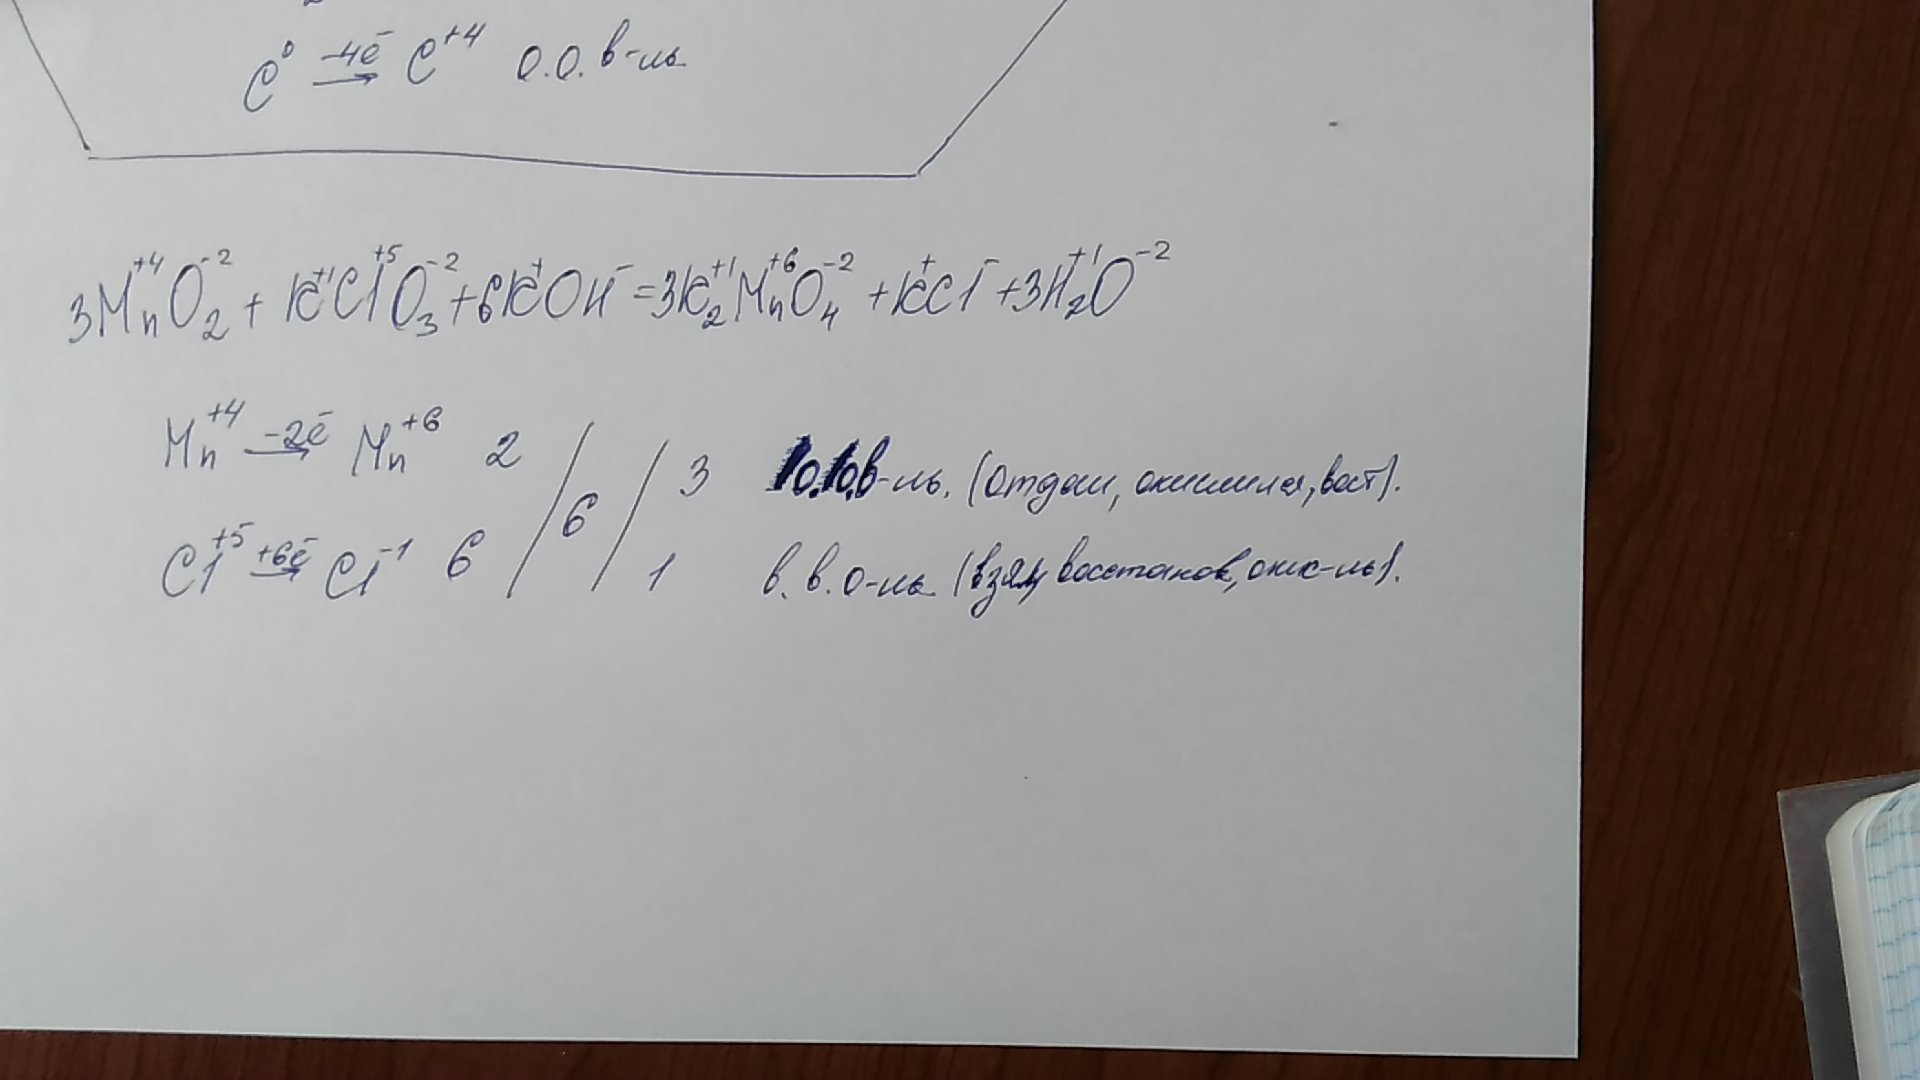 C⁰ —4ē→ C⁺⁴ О.О. в-ль
3Mn⁺⁴O₂⁻² + K⁺¹Cl⁺⁵O₃⁻² + 6K⁺OH⁻ = 3K₂⁺¹Mn⁺⁶O₄⁻² + K⁺Cl⁻ + 3H₂⁺¹O⁻²
Mn⁺⁴ —2ē→ Mn⁺⁶ 2 / 6 / 3 О.О.в-ль. (Отдал, окислился, вост).
Cl⁺⁵ +6ē→ Cl⁻¹ 6 / / 1 в.в.о-ль (взял, восстанов, окис-ль).